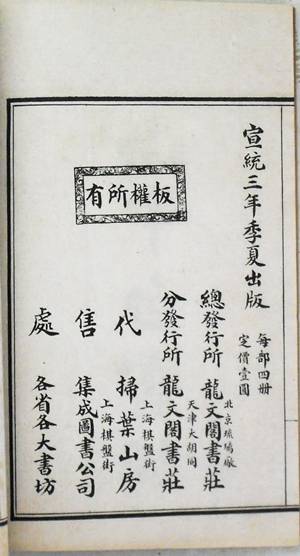 宣統三年季夏出版
每部四冊
定價壹圓
板權所有
北京琉璃廠
總發行所 龍文閣書莊
天津大胡同
分發行所 龍文閣書莊
上海棋盤街
代 掃葉山房
上海棋盤街
售 集成圖書公司
處 各省各大書坊